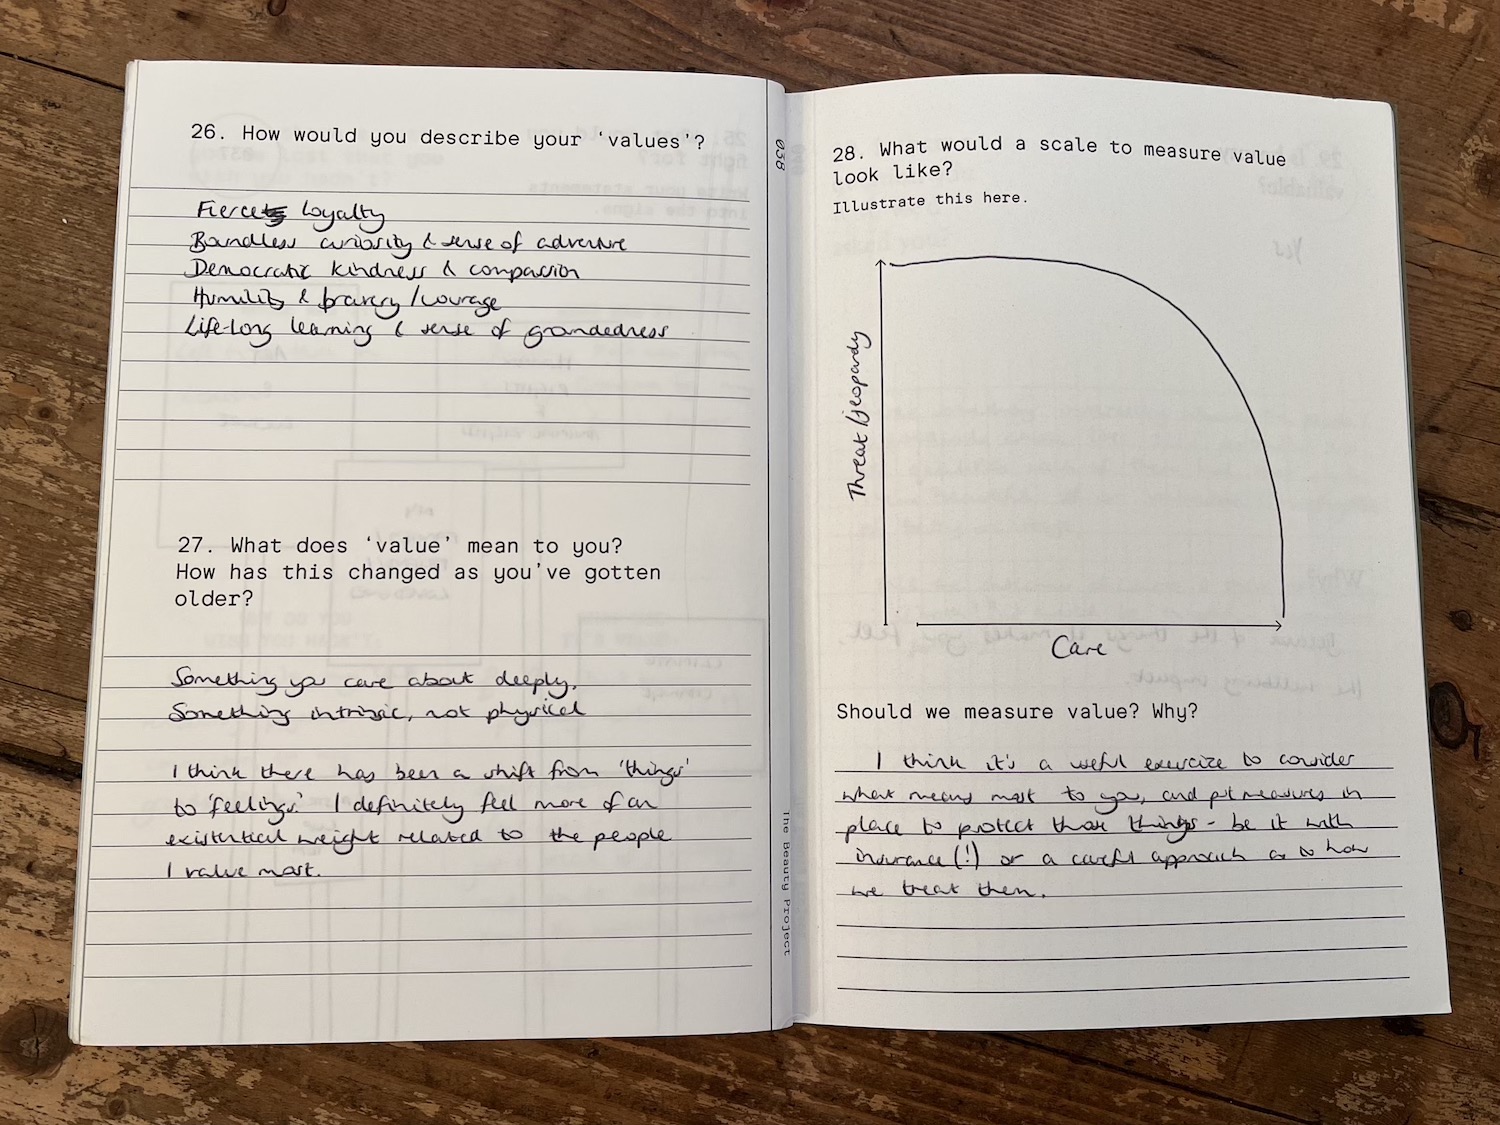 26. How would you describe your ‘values’?
Fierce Loyalty
Boundless curiosity & sense of adventure
Democratic kindness & compassion
Humility & bravery/courage
Life-long learning & sense of groundedness
27. What does ‘value’ mean to you?
How has this changed as you’ve gotten
older?
Something you care about deeply.
Something intrinsic, not physical
I think there has been a shift from 'things'
to 'feelings'. I definitely feel more of an
existential weight related to the people
I value most.
038
The Beauty Project
28. What would a scale to measure value
look like?
Illustrate this here.
Threat/jeopardy
Care
Should we measure value? Why?
I think it's a useful exercise to consider
what means most to you, and put measures in
place to protect those things - be it with
insurance (!) or a careful approach as to how
we treat them.